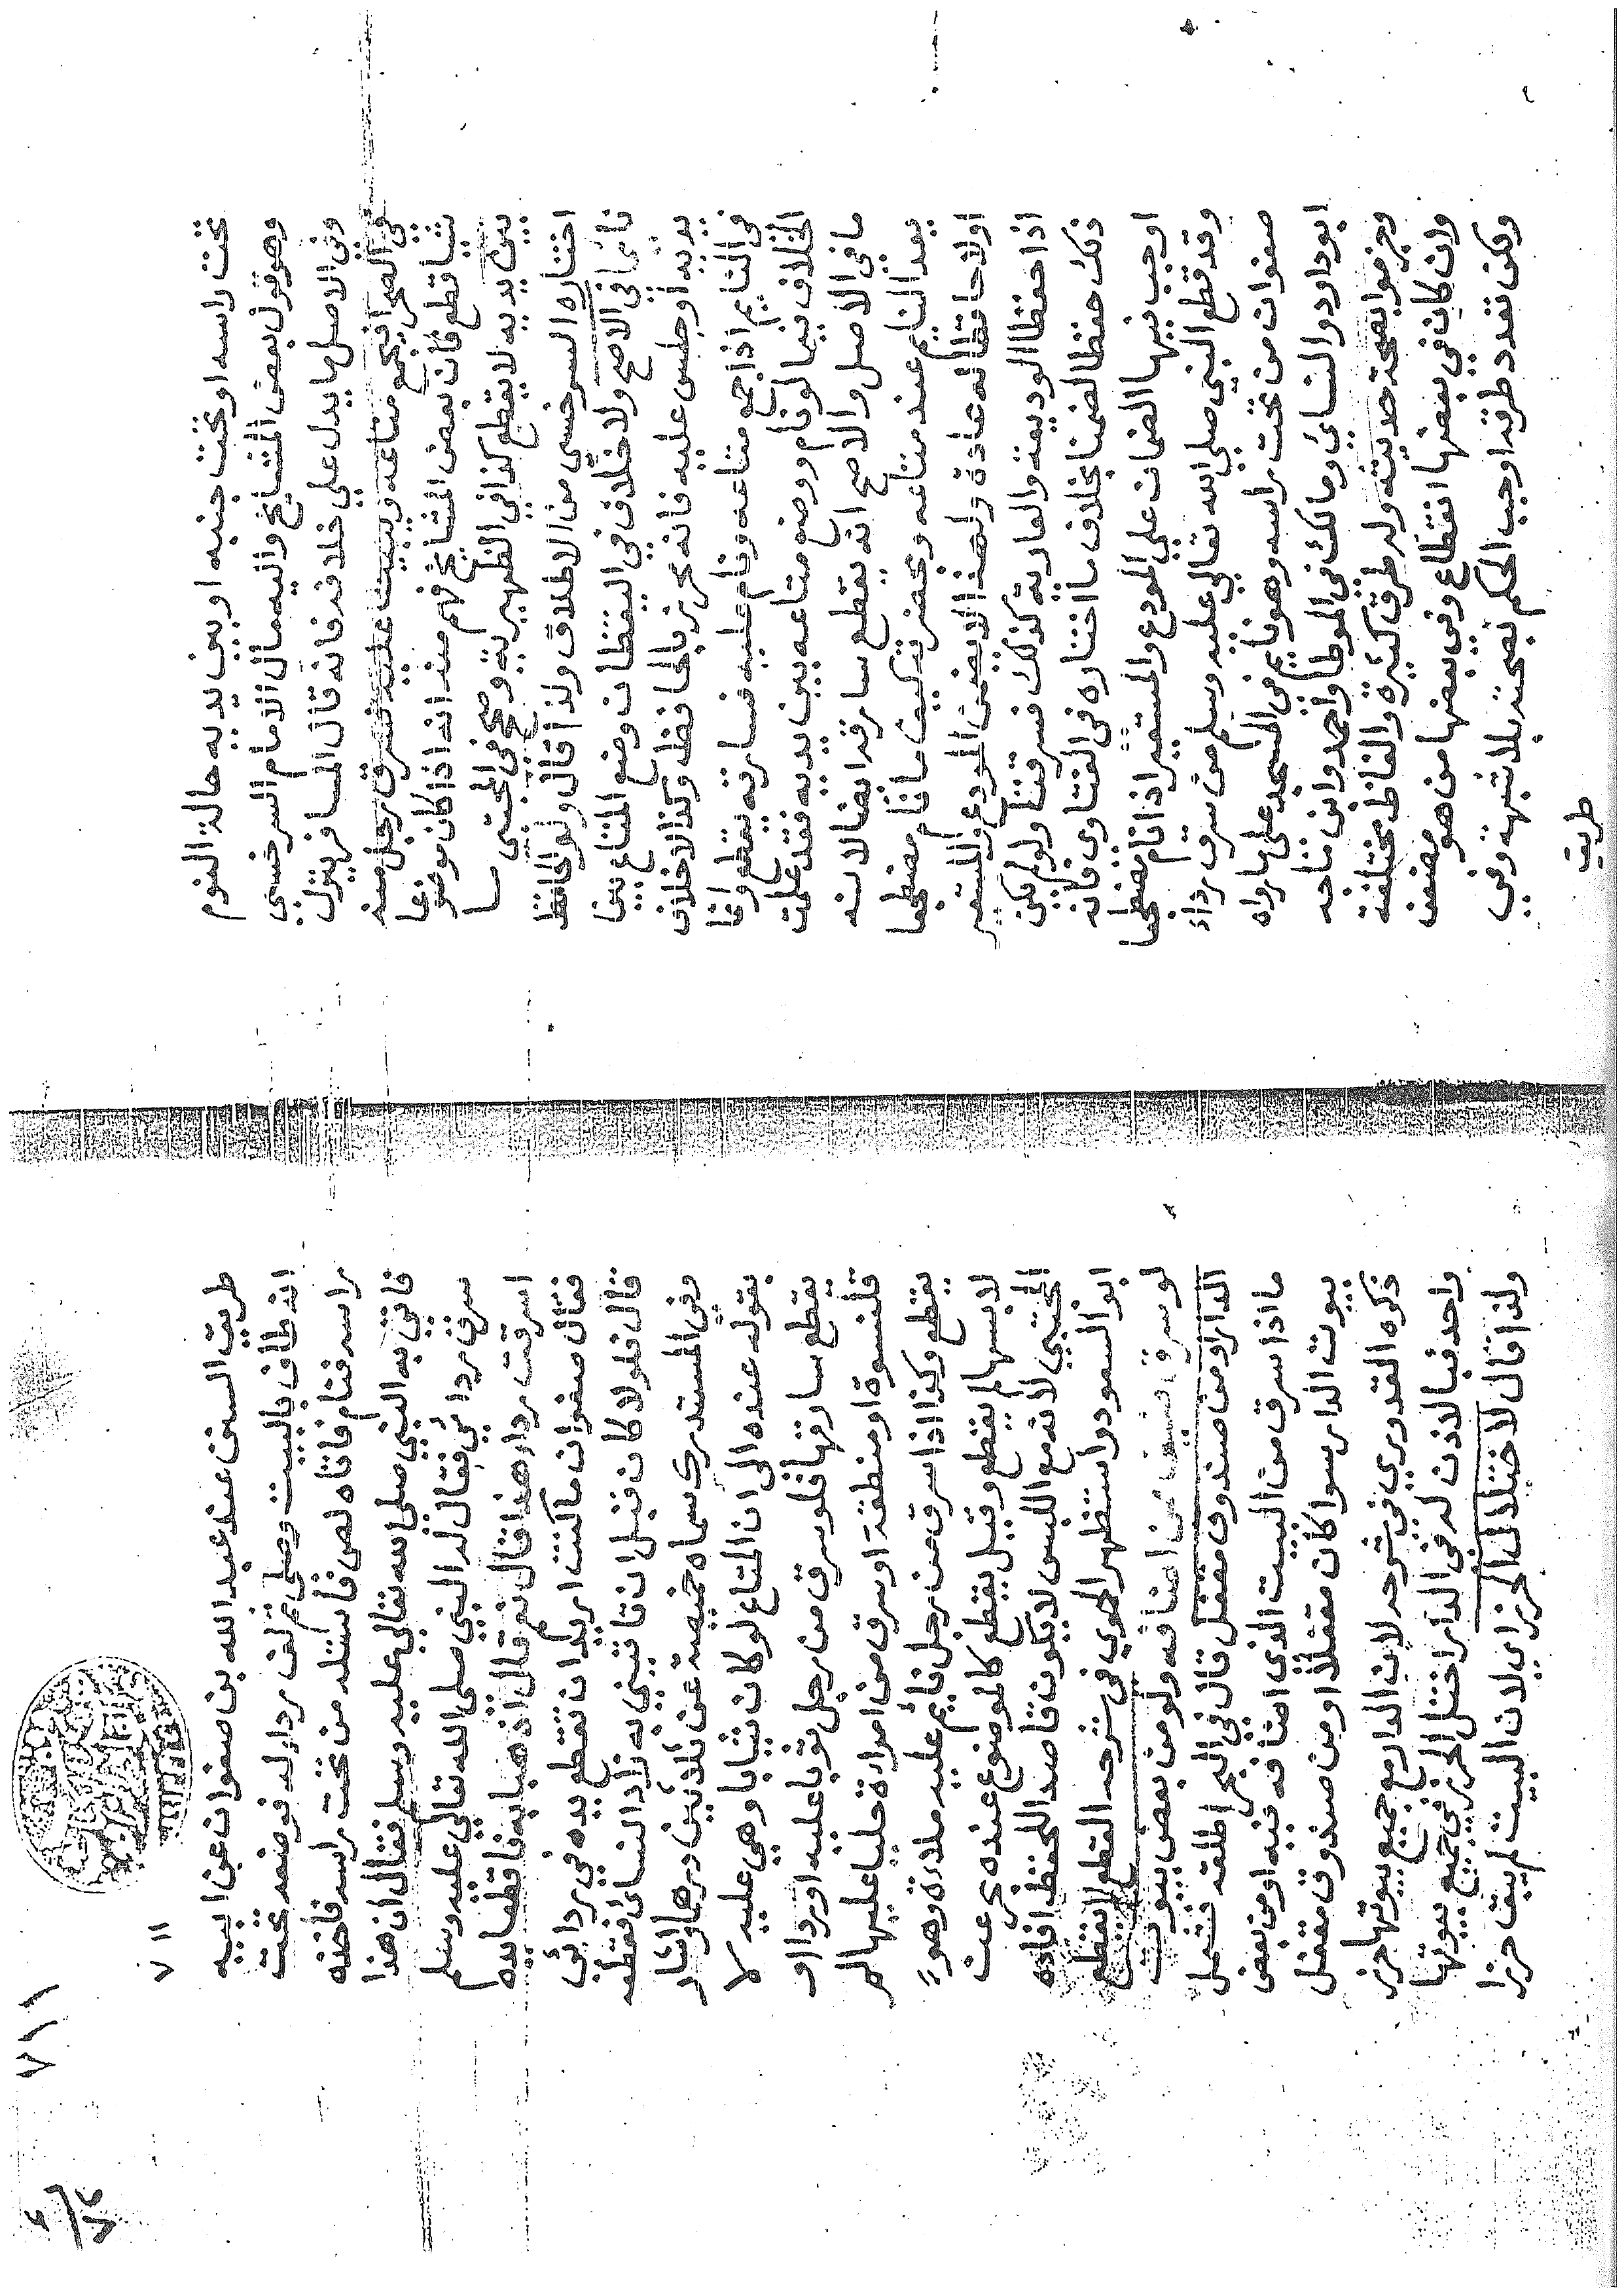 تحت راسه او تحت جنبه او بين يديه حالة النوم
وهو قول بعض المشايخ واليه مال الامام السرخسي
وفي الاصل ما يدل علي خلافه فانه قال المسافر ينزل
في الصحرا فيجمع متاعه ويبيت عليه فسرق رجل منه
شيا قطع فان بعض المشايخ فهم منه انه اذا كان موضوعا
بين يديه لا يقطع كذا في الظهيرية وصحح في المجتبى ما
اختاره السرخسي من الاطلاق ولذا قال ولو الحافظ
نائما في الاصح ولا خلاف في اليقظان وضع المتاع بين
يديه او جلس عليه فانه محرز بالحافظ وكذا لا خلاف
في النايم اذا جمع متاعه ونام عليه فسارقه يقطع وانما
الخلاف فيما لو نام ووضع متاعه بين يديه فقد علمت
ما في الاصل والاصح انه يقطع سارقه ايضا لانه
يعد النايم عند متاعه وبحضرته كيف ما نام مضطجعا
اولا حافظا له عادة ولهذا لا يضمن المودع والمستعير
اذا حفظا الوديعة والعارية كذلك فسرقتا ولو لم يكن
ذلك حفظا لضمنا بخلاف ما اختاره في الفتاوى فانه
اوجب فيها الضمان علي المودع والمستعير اذا نام مضطجعا
وقد قطع النبي صلي الله تعالي عليه وسلم من سرق رداء
صفوان من تحت راسه وهو نايم في المسجد على ما رواه
ابو داود والنسائي ومالك في الموطا واحمد وابن ماجه
وجزموا بصحة حديثه وله طرق كثيرة والفاظ مختلفة
وان كان في بعضها انقطاع وفي بعضها من هو مضعف
ولكن تعدد طرقه اوجب الحكم بصحته بلا شبهة وفي
طريق
٧١١
٧١١
طريق السنن عند عبد الله بن صفوان عن ابيه
انه طاف بالبيت وصلى ثم لف رداء له فوضعه تحت
راسه فنام فاتاه لص فاستله من تحت راسه فاخذه
فاتي به النبي صلى الله تعالي عليه وسلم فقال ان هذا
سرق ردائي فقال له النبي صلى الله تعالي عليه وسلم
اسرقت رداء هذا قال نعم قال اذهبا به فاقطعا يده
فقال صفوان ما كنت اريد ان تقطع يده في ردائي
قال فلولا كان قبل ان تاتيني به زاد النسائ فقطعه
وفي المستدرك سماه خميصة ثمن ثلاثين درهما واشار
بقوله عنده الى ان المتاع لو كان ثيابا وهي عليه لا
يقطع سارقها فلو سرق من رجل ثوبا عليه او رداء او
قلنسوة او منطقة او سرق من امراة حليا عليها لم
يقطع وكذا اذا سرق من رجل نايم عليه ملاءة وهو
لابسها لم يقطع وقيل يقطع كالموضوع عنده بحر عن
المجتبي لانه مع اللبس لا يكون قاصدا للحفظ افاده
ابو السعود واستظهر الحموي في شرحه القطع انقطع
لو سرق ضيف من اضافه ولو من بعض بيوت
الدار او من صندوق مقفل قال في البحر اطلقه فشمل
ما اذا سرق من البيت الذي اضافه فيه او من بعض
بيوت الدار سوا كان مقفلا او من صندوق مقفل
ذكره القدوري في شرحه لان الدار مع جميع بيوتها حرز
واحد فبالاذن له في الدار اختل الحرز في جميع بيوتها
ولذا قال لاختلال الحرز اي لان البيت لم يبق حرزا